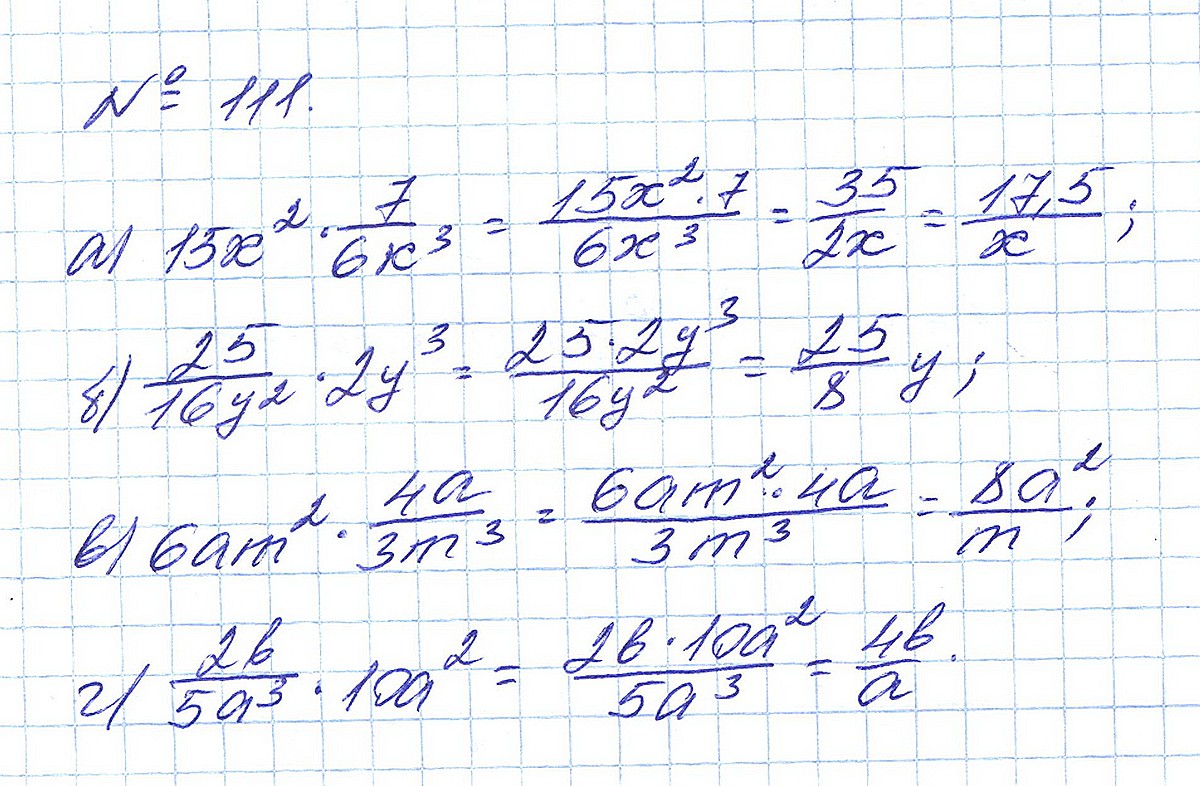 № 111.
а) 15x² · 7/6x³ = 15x² · 7/6x³ = 35/2x = 17,5/x ;
б) 25/16y² · 2y³ = 25 · 2y³/16y² = 25/8 y ;
в) 6am² · 4a/3m³ = 6am² · 4a/3m³ = 8a²/m ;
г) 2b/5a³ · 10a² = 2b · 10a²/5a³ = 4b/a .